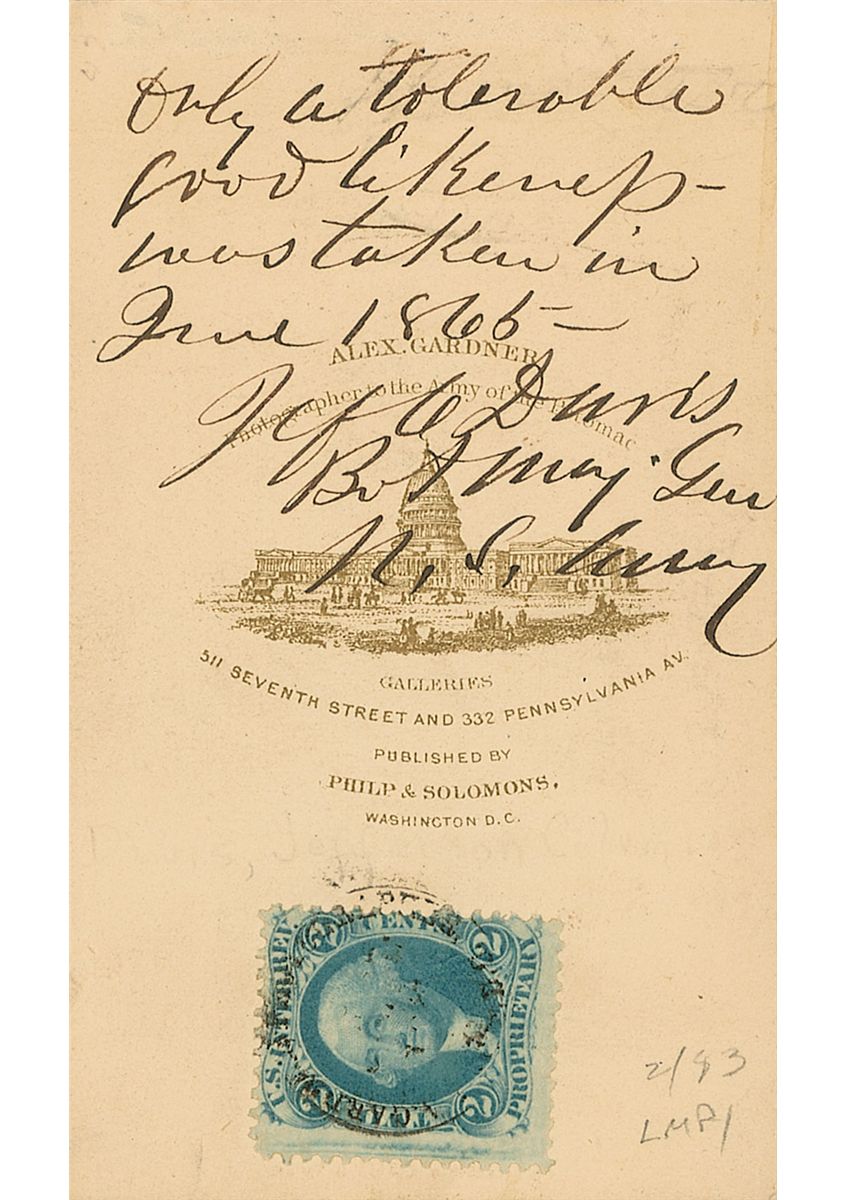 Only a tolerable
good likeness –
was taken in
June 1865 –
Jef C Davis
Bvt Maj. Gen
U. S. Army
ALEX. GARDNER
Photographer to the Army of the Potomac
GALLERIES
511 SEVENTH STREET AND 332 PENNSYLVANIA AV.
PUBLISHED BY
PHILP & SOLOMONS,
WASHINGTON D.C.
U.S. INTER. REV.
2 CENTS 2
PROPRIETARY
2 2
2/83